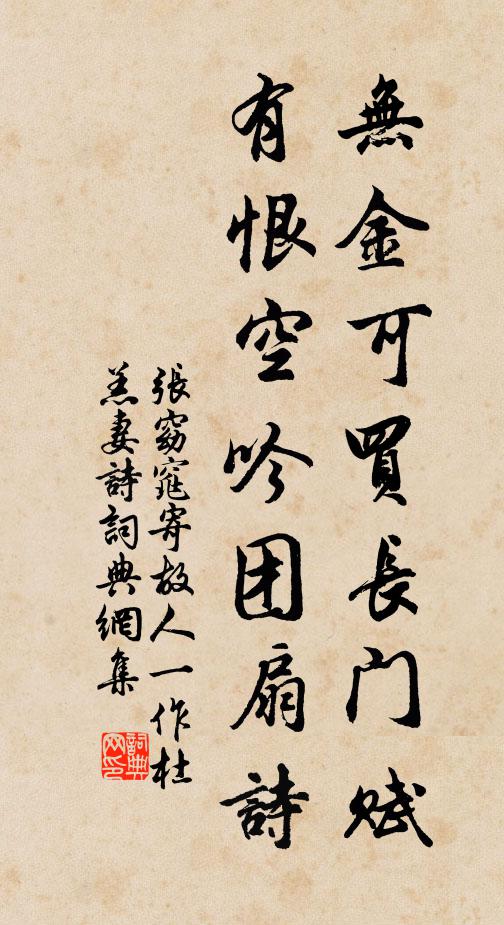 無金可買長門赋
有恨空吟团扇詩
張窈窕寄故人一作杜
羔妻詩詞典網集
詞典网印